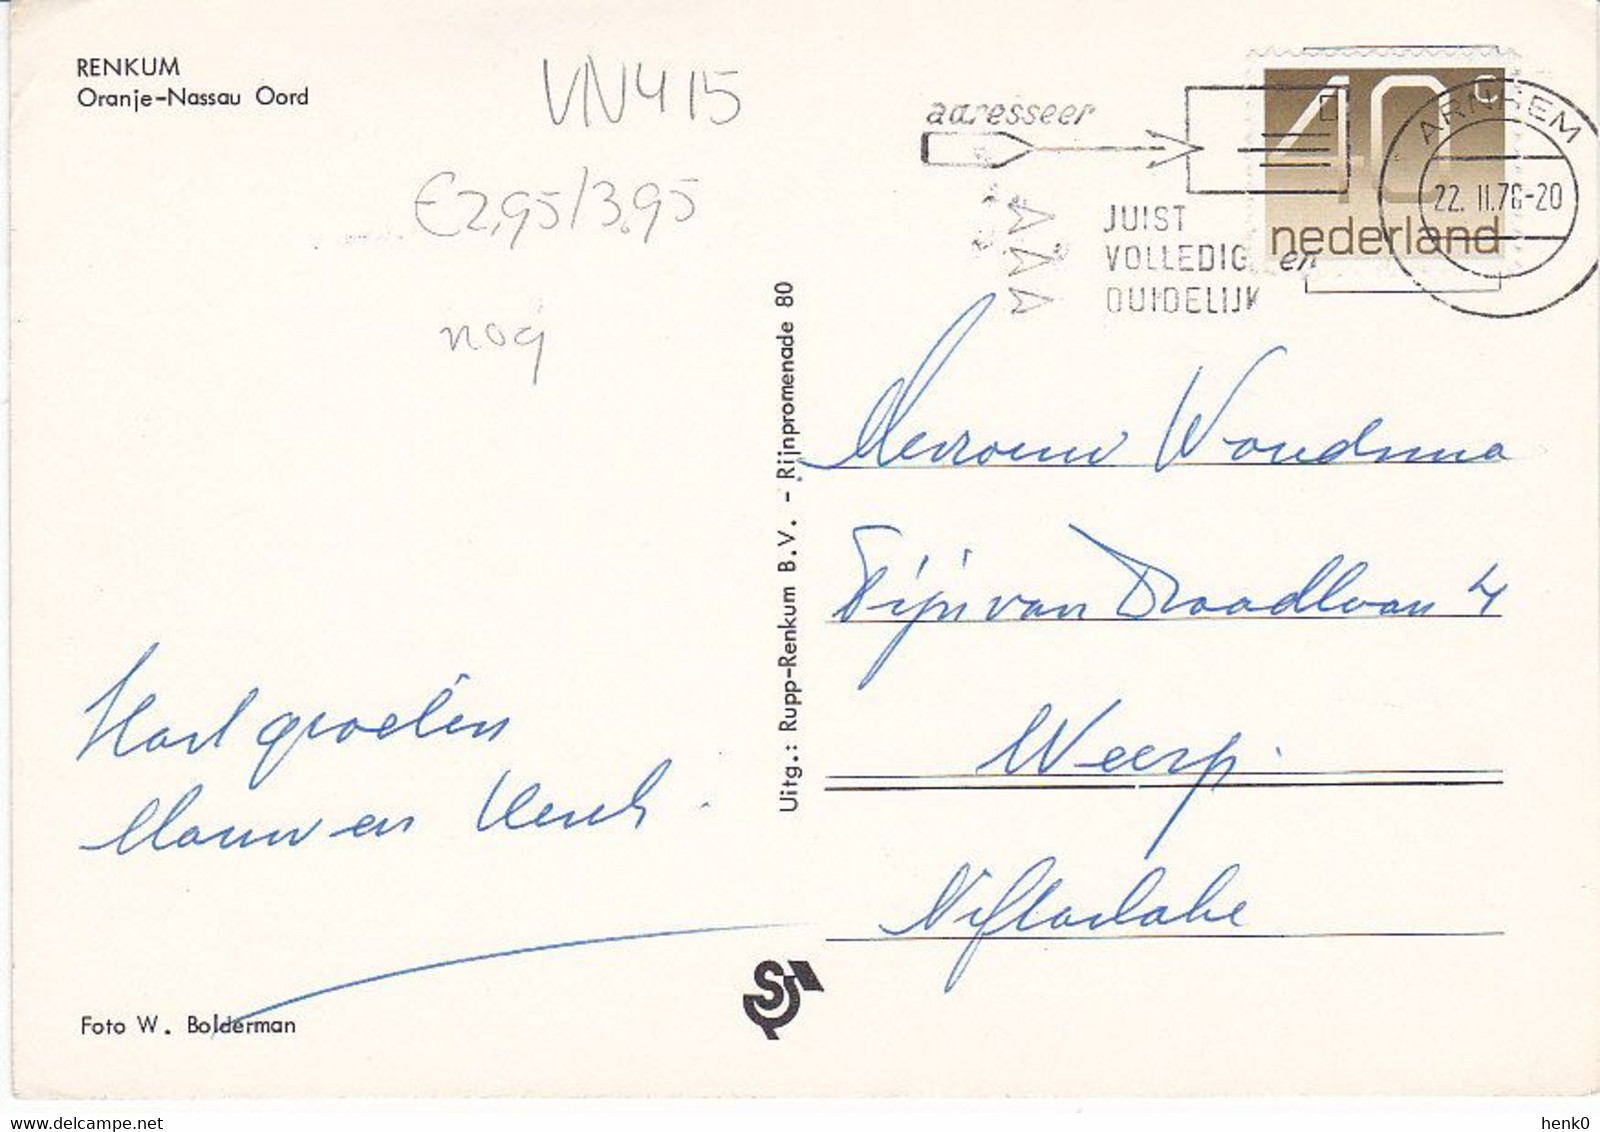 RENKUM
Oranje-Nassau Oord
VN415
€2,95/3,95
nog
adresseer
JUIST
VOLLEDIG en
DUIDELIJK
40c
nederland
ARNHEM
22. II.76-20
Uitg.: Rupp-Renkum B.V. - Rijnpromenade 80
Mevrouw Woudsma
Pijn van Draadlaan 4
Weesp.
Hart groeten
en Henk.
Foto W. Bolderman
henk0